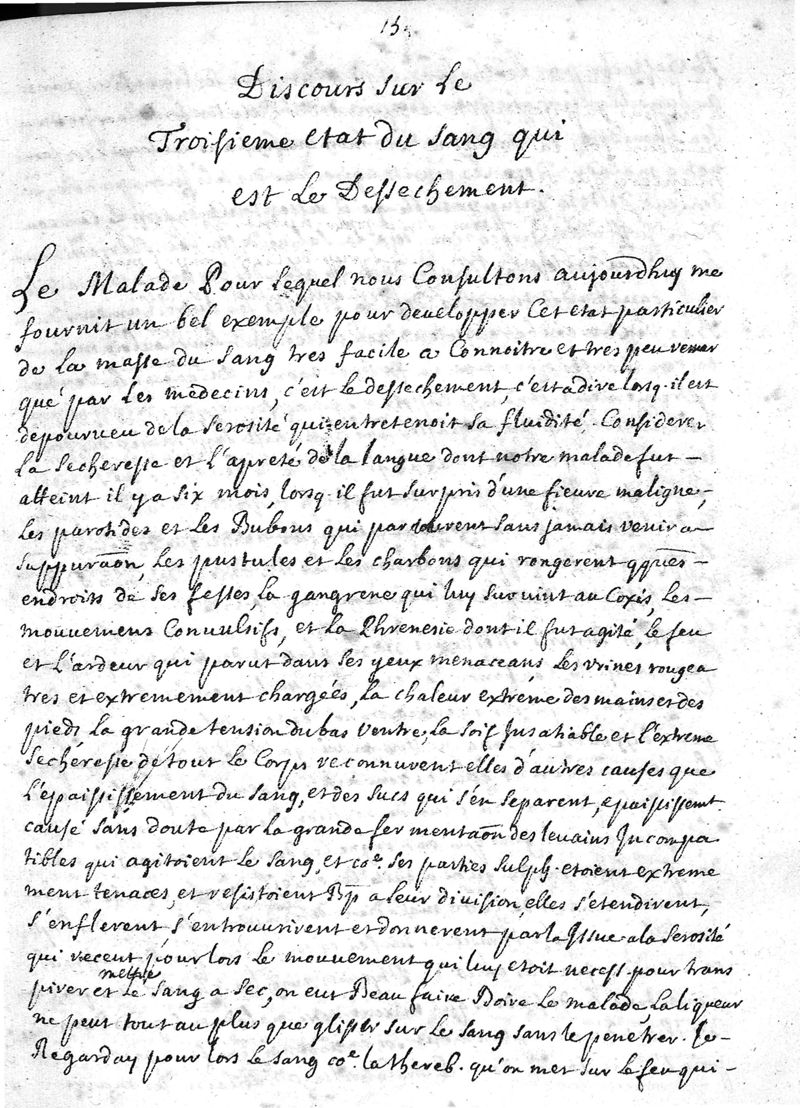 15.
Discours sur le
Troisieme etat du sang qui
est le Dessechement.
Le Malade Pour lequel nous Consultons aujourdhuy me
fournit un bel exemple pour developper Cet etat particulier
de la masse du sang tres facile a Connoitre et tres peu remar
qué par les medecins, c'est le dessechement, c'est a dire lorsq. il est
depourveu de la serosité qui entretenoit sa fluidité. Considerer
la secheresse et l'apreté de la langue dont notre malade fut –
atteint il y a six mois, lorsq. il fut surpris d'une fievre maligne,
les parotides et les Bubons qui parurent sans jamais venir a
suppuraõn, les pustules et les charbons qui rongerent qques –
endroits de ses fesses, la gangrene qui luy survint au Coxis, les –
mouvemens Convulsifs, et la Phrenesie dont il fut agité, le feu
et l'ardeur qui parut dans ses yeux menaceans les urines rougea
tres et extremement chargées, la chaleur extrême des mains et des
pieds la grande tension du bas ventre, la soif Insatiable et l'extreme
secheresse de tout le Corps reconnurent elles d'autres causes que
l'epaississement du sang, et des sucs qui s'en separent, epaississemt.
causé sans doute par la grande fermentaõn des levains Incompa
tibles qui agitoient le sang, et coe. ses parties sulph. etoient extreme
ment tenaces, et resistoient Bp a leur division, elles s'etendirent,
s'enflerent s'entrouvrirent et donnerent par la Issue a la serosité
qui recent pour lors le mouvement qui luy etoit necess. pour trans
pirer et mettre le sang a sec, on eut Beau faire Boire le malade, la liqueur
ne peut tout au plus que glisser sur le sang sans le penetrer. Je –
Regarday pour lors le sang coe. la thereb. qu'on met sur le feu qui –